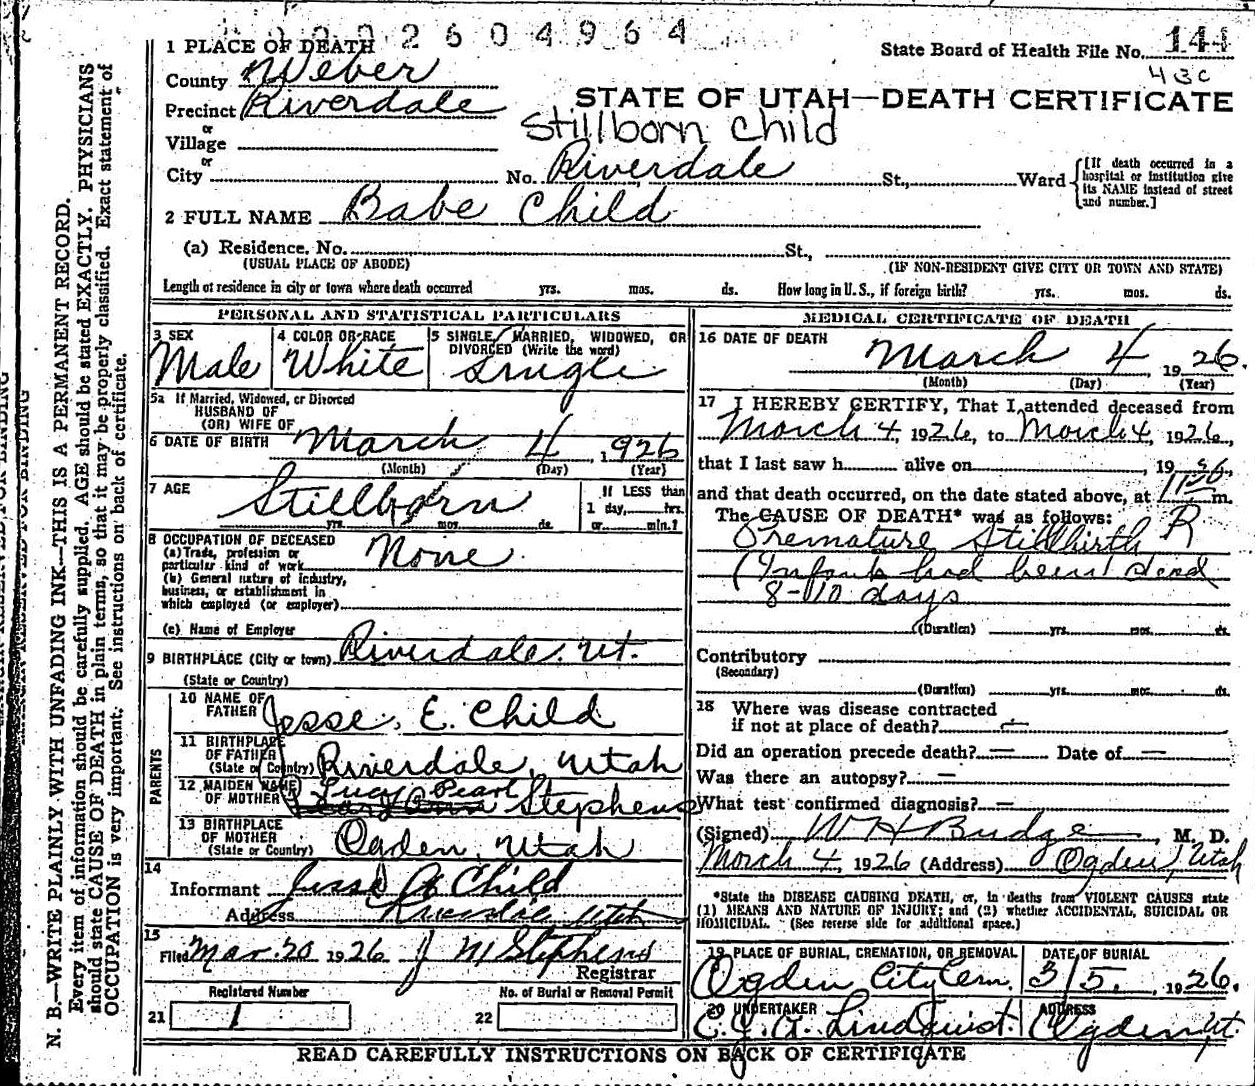 0002604964
State Board of Health File No. 144
43c
1 PLACE OF DEATH
County Weber
Precinct Riverdale
STATE OF UTAH—DEATH CERTIFICATE
Stillborn Child
or
Village
or
City No. Riverdale St., Ward
[If death occurred in a hospital or institution give its NAME instead of street and number.]
2 FULL NAME Babe Child
(a) Residence, No. St.,
(USUAL PLACE OF ABODE) (IF NON-RESIDENT GIVE CITY OR TOWN AND STATE)
Length of residence in city or town where death occurred yrs. mos. ds. How long in U. S., if foreign birth? yrs. mos. ds.
PERSONAL AND STATISTICAL PARTICULARS
3 SEX
Male
4 COLOR OR RACE
White
5 SINGLE, MARRIED, WIDOWED, OR DIVORCED (Write the word)
Single
5a If Married, Widowed, or Divorced
HUSBAND OF
(OR) WIFE OF
6 DATE OF BIRTH March 4, 1926
(Month) (Day) (Year)
7 AGE
Stillborn
yrs. mos. ds.
If LESS than
1 day, hrs.
or min.?
8 OCCUPATION OF DECEASED
None
(a) Trade, profession or
particular kind of work
(b) General nature of industry,
business, or establishment in
which employed (or employer)
(c) Name of Employer
9 BIRTHPLACE (City or town) Riverdale. Ut.
(State or Country)
PARENTS
10 NAME OF FATHER Jesse. E. Child
11 BIRTHPLACE OF FATHER
(State or Country) Riverdale, Utah
12 MAIDEN NAME OF MOTHER Lucy Pearl Stephens
13 BIRTHPLACE OF MOTHER
(State or Country) Ogden, Utah
14
Informant Jesse Child
Address Riverdale Utah
15
Filed Mar. 20 1926 J M Stephens
Registrar
Registered Number
21 1
No. of Burial or Removal Permit
22
MEDICAL CERTIFICATE OF DEATH
16 DATE OF DEATH
March 4 1926.
(Month) (Day) (Year)
17 I HEREBY CERTIFY, That I attended deceased from
March 4, 1926, to March 4, 1926,
that I last saw h alive on , 19
and that death occurred, on the date stated above, at m.
The CAUSE OF DEATH* was as follows:
Premature Stillbirth R
(Infant had been dead
8-10 days
(Duration) yrs. mos. ds.
Contributory
(Secondary)
(Duration) yrs. mos. ds.
18 Where was disease contracted
if not at place of death? —
Did an operation precede death? — Date of —
Was there an autopsy? —
What test confirmed diagnosis? —
(Signed) W H Budge, M. D.
March 4, 1926 (Address) Ogden, Utah
*State the DISEASE CAUSING DEATH, or, in deaths from VIOLENT CAUSES state
(1) MEANS AND NATURE OF INJURY; and (2) whether ACCIDENTAL, SUICIDAL OR
HOMICIDAL. (See reverse side for additional space.)
19 PLACE OF BURIAL, CREMATION, OR REMOVAL
Ogden City Cem.
DATE OF BURIAL
3/5. , 1926.
20 UNDERTAKER
Lindquist.
ADDRESS
Ogden, Ut.
READ CAREFULLY INSTRUCTIONS ON BACK OF CERTIFICATE
N. B.—WRITE PLAINLY WITH UNFADING INK—THIS IS A PERMANENT RECORD.
Every item of information should be carefully supplied. AGE should be stated EXACTLY. PHYSICIANS
should state CAUSE OF DEATH in plain terms, so that it may be properly classified. Exact statement of
OCCUPATION is very important. See instructions on back of certificate.